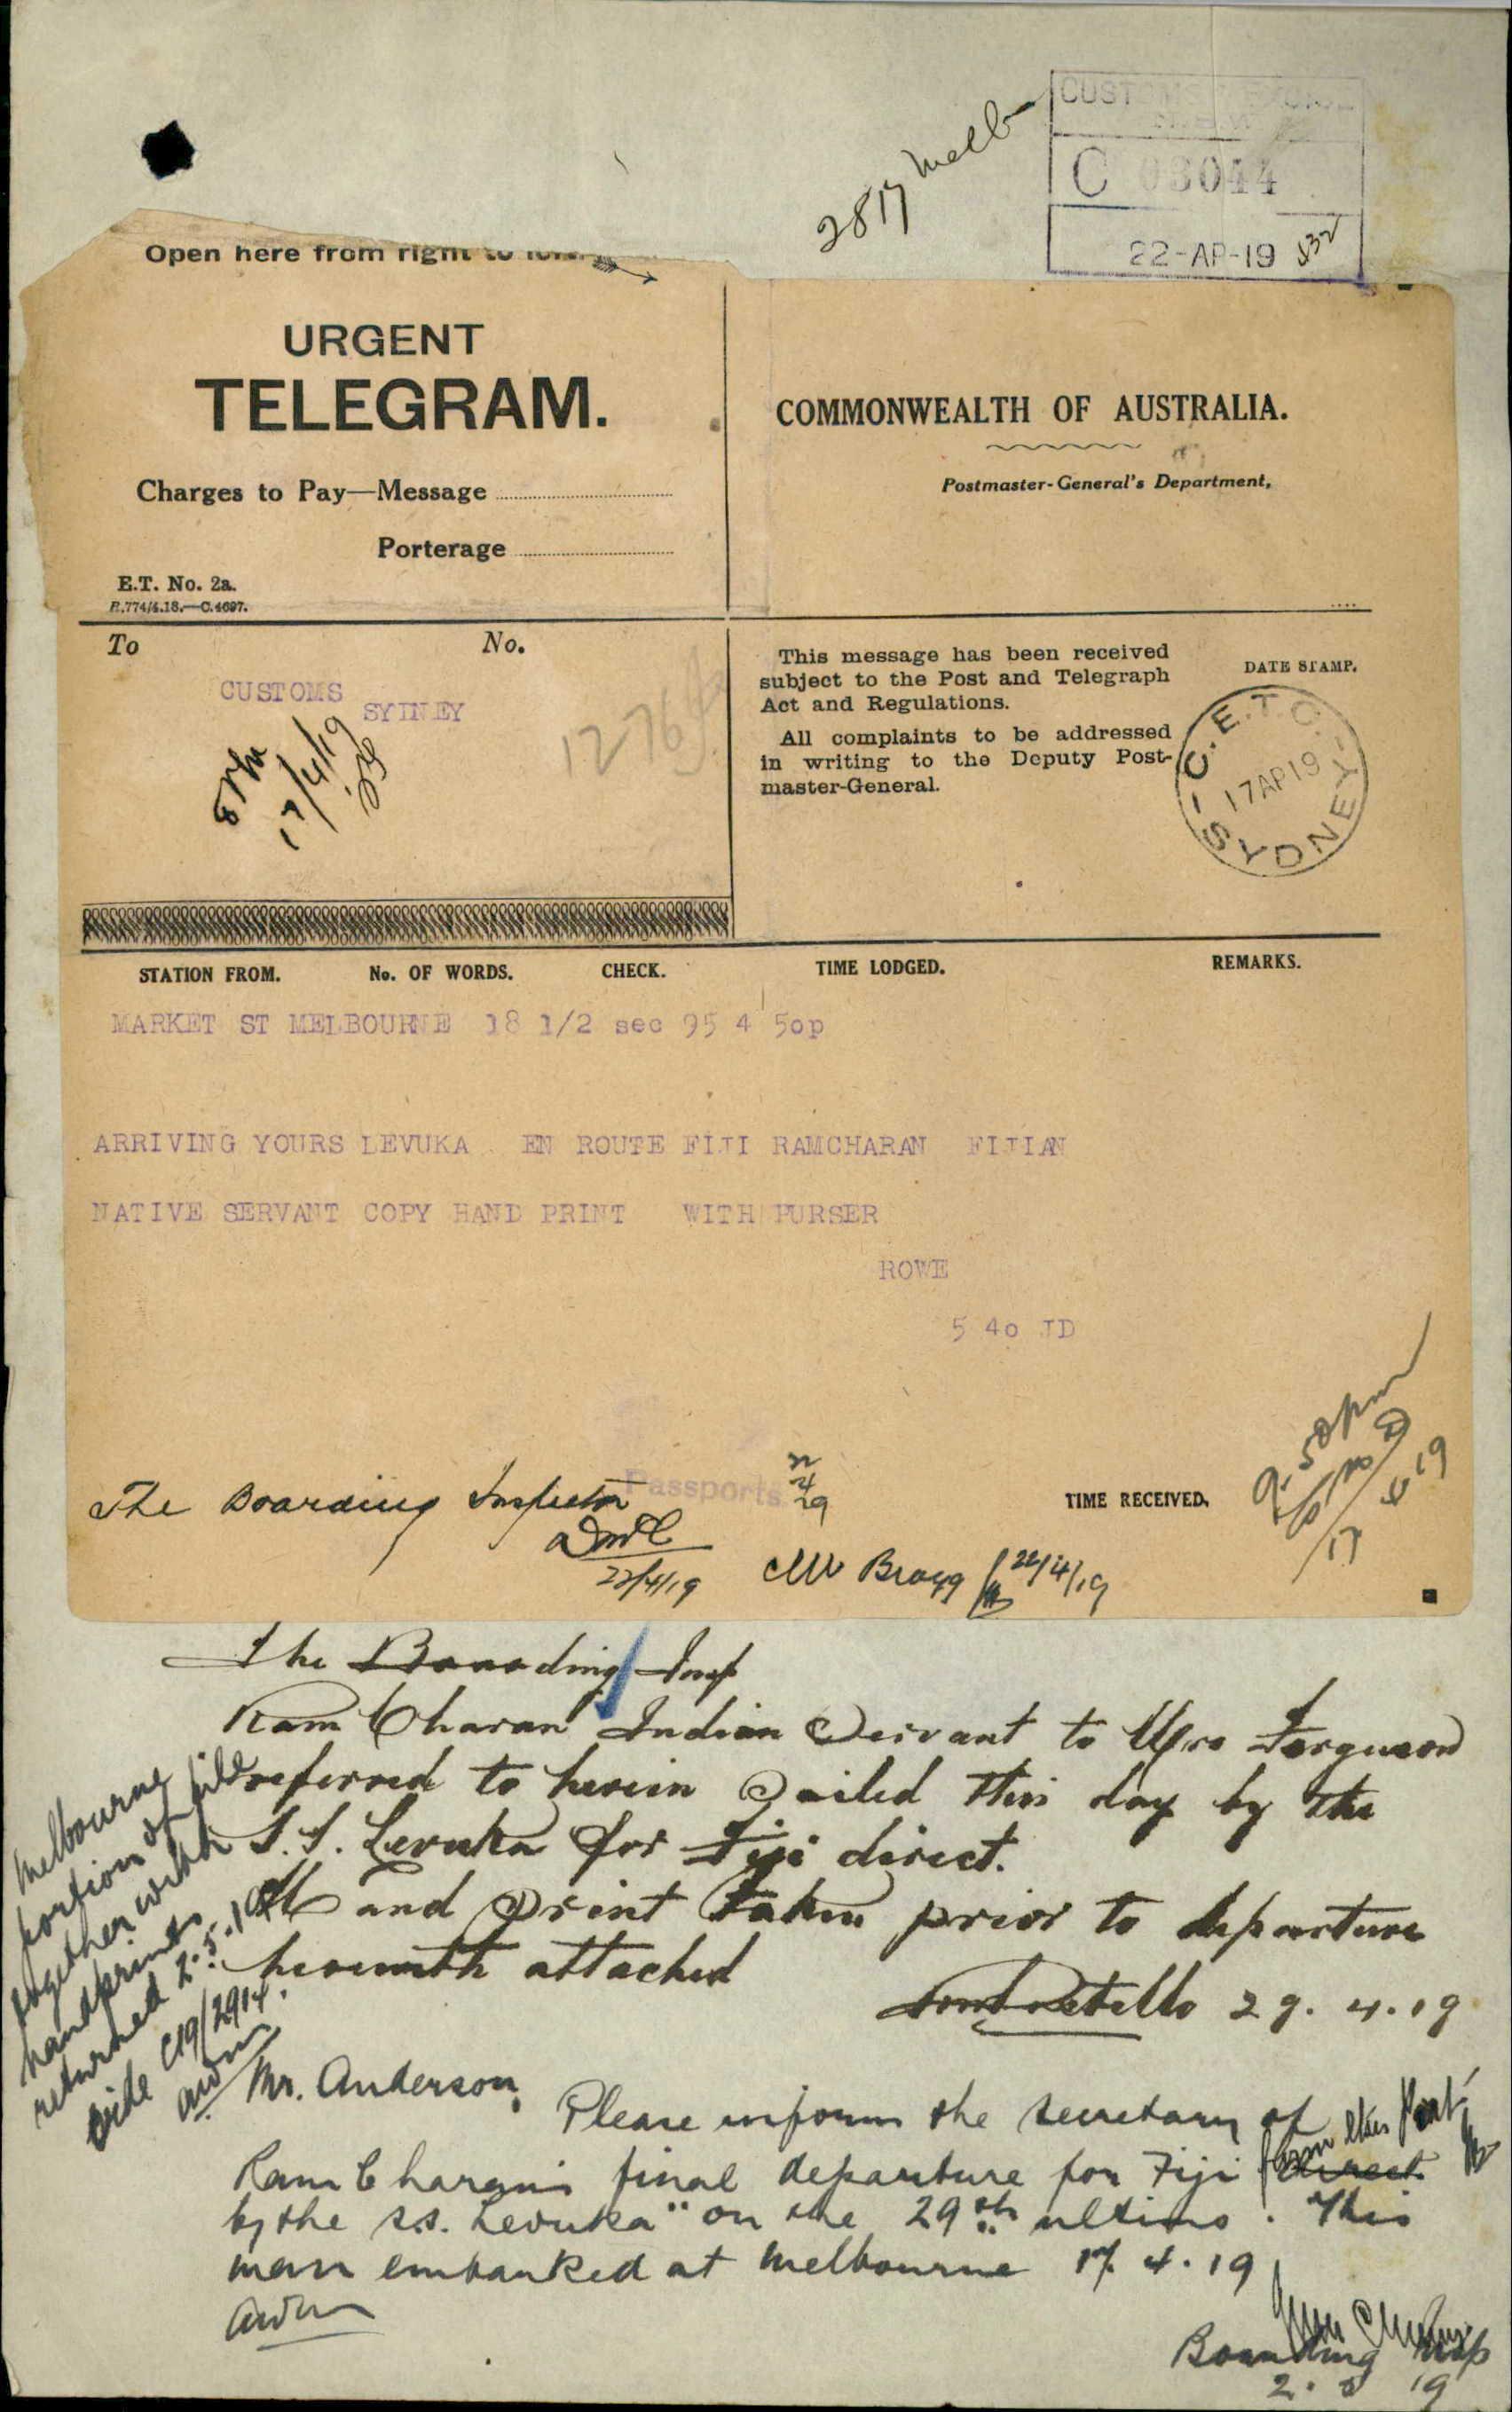 2817 Melb
CUSTOMS & EXCISE
N.S.W.
C 03044
22-AP-19 532
Open here from right to
URGENT
TELEGRAM.
Charges to Pay—Message
Porterage
E.T. No. 2a.
R.774/4.18.—C.4697.
COMMONWEALTH OF AUSTRALIA.
Postmaster-General's Department,
To No.
CUSTOMS
SYDNEY
17/4/19
12764
This message has been received
subject to the Post and Telegraph
Act and Regulations.
All complaints to be addressed
in writing to the Deputy Post-
master-General.
DATE STAMP.
C.E.T.O.
17AP19
SYDNEY
STATION FROM. No. OF WORDS. CHECK. TIME LODGED. REMARKS.
MARKET ST MELBOURNE 18 1/2 sec 95 4 50p
ARRIVING YOURS LEVUKA EN ROUTE FIJI RAMCHARAN FIJIAN
NATIVE SERVANT COPY HAND PRINT WITH PURSER
ROWE
5 40 JD
Passports
The Boarding Inspector
22/4/19
Mr Bragg 22/4/19
TIME RECEIVED.
9.50pm
17 4 19
The Boarding Insp
Ram Charan Indian Servant to Mrs Ferguson
referred to herein Sailed this day by the
S.S. Levuka for Fiji direct.
Hand Print taken prior to departure
herewith attached
29.4.19
Melbourne
portion of file
together with
handprints
returned 2.5.19
vide C19/2914.
Mr. Anderson,
Please inform the secretary of
Ram Charan's final departure for Fiji direct from this Port
by the s.s. Levuka" on the 29th ultimo. This
man embarked at Melbourne 17.4.19
Boarding Insp
2. 5 19